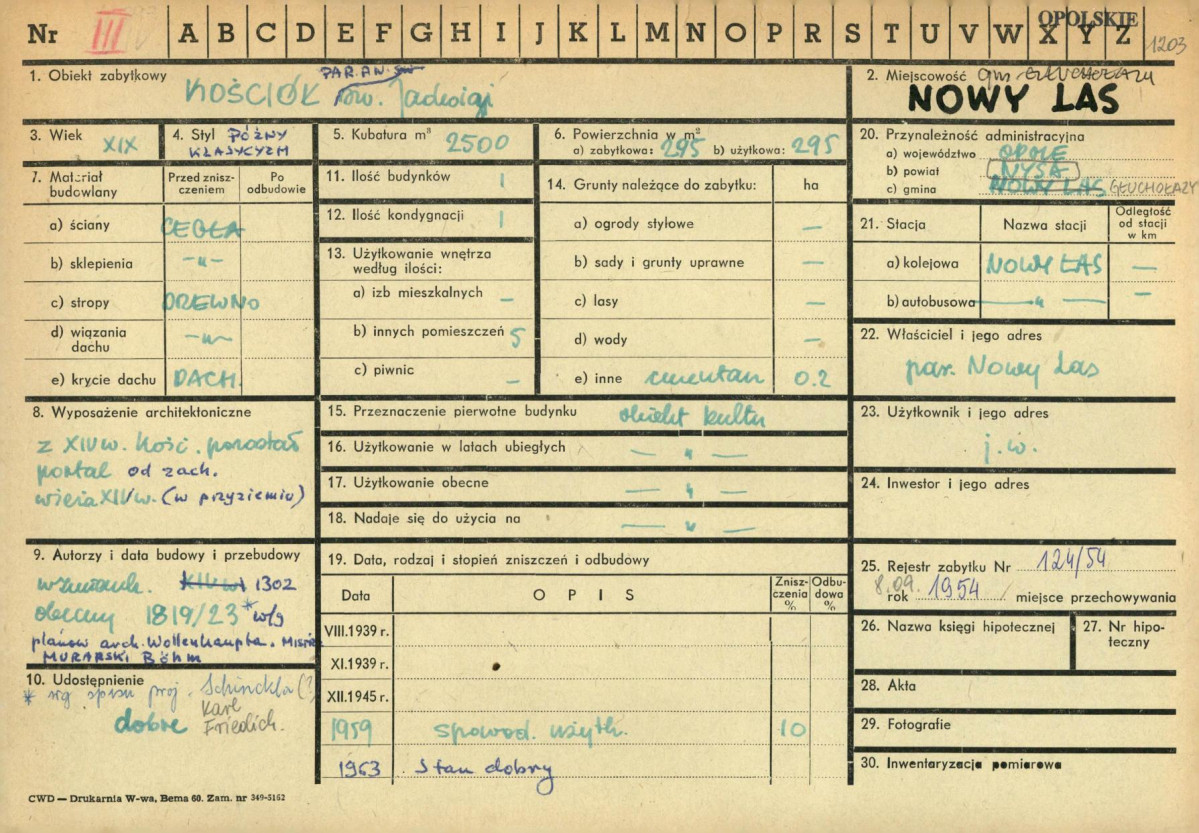 Nr III A B C D E F G H I J K L M N O P R S T U V W X Y Z
OPOLSKIE
1203
1. Obiekt zabytkowy
PAR. P.W. św.
KOŚCIÓŁ św. Jadwigi
2. Miejscowość gm GŁUCHOŁAZY
NOWY LAS
3. Wiek XIX
4. Styl PÓŹNY
KLASYCYZM
5. Kubatura m³ 2500
6. Powierzchnia w m²
a) zabytkowa: 295 b) użytkowa: 295
20. Przynależność administracyjna
a) województwo OPOLE
b) powiat NYSA
c) gmina NOWY LAS GŁUCHOŁAZY
7. Materiał budowlany
Przed zniszczeniem
Po odbudowie
a) ściany CEGŁA
b) sklepienia —„—
c) stropy DREWNO
d) wiązania dachu —„—
e) krycie dachu DACH.
11. Ilość budynków 1
12. Ilość kondygnacji 1
13. Użytkowanie wnętrza
według ilości:
a) izb mieszkalnych —
b) innych pomieszczeń 5
c) piwnic —
14. Grunty należące do zabytku: ha
a) ogrody stylowe —
b) sady i grunty uprawne —
c) lasy —
d) wody —
e) inne cmentarz 0.2
21. Stacja Nazwa stacji Odległość od stacji w km
a) kolejowa NOWY LAS —
b) autobusowa —„— —
22. Właściciel i jego adres
par. Nowy Las
8. Wyposażenie architektoniczne
z XIV w. kość. pozostał
portal od zach.
wieża XIV w. (w przyziemiu)
15. Przeznaczenie pierwotne budynku obiekt kultu
16. Użytkowanie w latach ubiegłych — „ —
17. Użytkowanie obecne — „ —
18. Nadaje się do użycia na — „ —
23. Użytkownik i jego adres
j. w.
24. Inwestor i jego adres
9. Autorzy i data budowy i przebudowy
wzmiank. XIV w 1302
obecny 1819/23 * wg
planów arch. Wollenhaupta. Mistrz
MURARSKI Böhm
10. Udostępnienie
* wg spisu proj. Schinckla (?)
Karl
dobre Friedich.
19. Data, rodzaj i stopień zniszczeń i odbudowy
Data OPIS Zniszczenia % Odbudowa %
VIII.1939 r.
XI.1939 r.
XII.1945 r.
1959 spowod. użytk. 10
1963 Stan dobry
25. Rejestr zabytku Nr 124/54
8.09. rok 1954 miejsce przechowywania
26. Nazwa księgi hipotecznej
27. Nr hipoteczny
28. Akta
29. Fotografie
30. Inwentaryzacja pomiarowa
CWD — Drukarnia W-wa, Bema 60. Zam. nr 349-5162